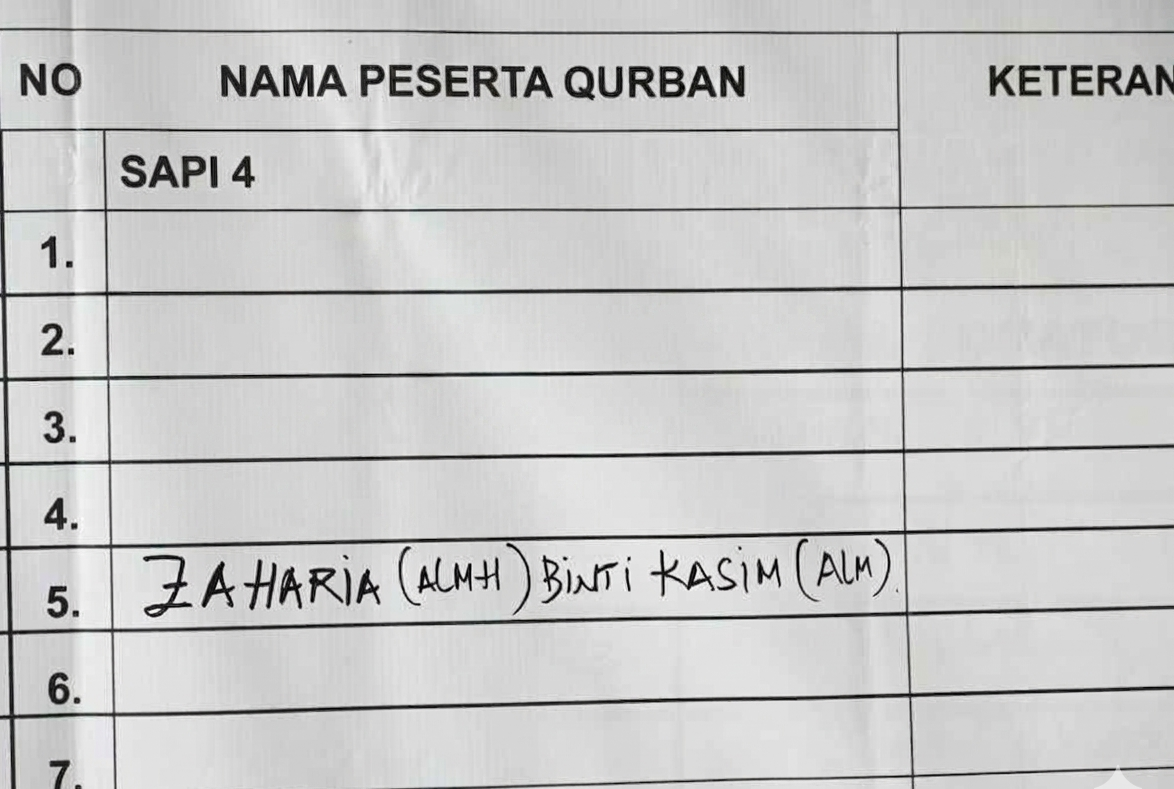 NO NAMA PESERTA QURBAN KETERAN
SAPI 4
1.
2.
3.
4.
5. ZAHARiA (ALMH) BiNTi KASiM (ALM).
6.
7.